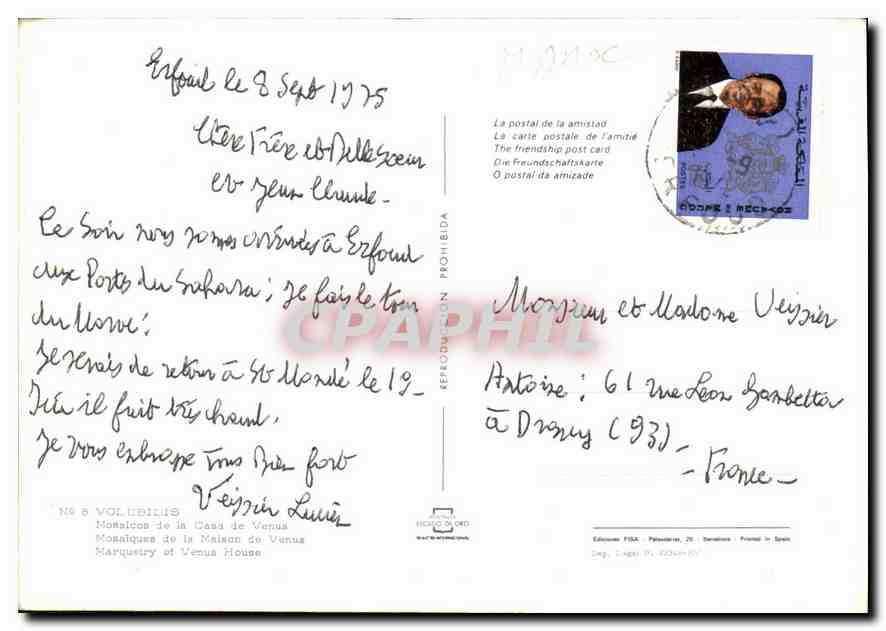 MAROC
Erfoud le 8 Sept 1975
Chère Frère et Belle Soeur
et Jean Claude -
Ce Soir nous sommes arrivées à Erfoud
aux Portes du Sahara ; je fais le tour
du Maroc.
Je serais de retour à St Mandé le 19 -
Ici il fait très chaud.
Je vous embrasse tous bien fort
Veissier Lucien
Nº 8 VOLUBILIS
Mosaicos de la Casa de Venus
Mosaïques de la Maison de Venus
Marquetry of Venus House
REPRODUCCION PROHIBIDA
ESCUDO DE ORO
La postal de la amistad
La carte postale de l'amitié
The friendship post card
Die Freundschaftskarte
O postal da amizade
المملكة المغربية
POSTES
ROYAUME DU MAROC
Monsieur et Madame Veissier
Antoine : 61 rue Léon Gambetta
à Drancy (93)
= France -
Ediciones FISA - Palaudarias, 26 - Barcelona - Printed in Spain
Dep. Legal B.
CPAPHIL